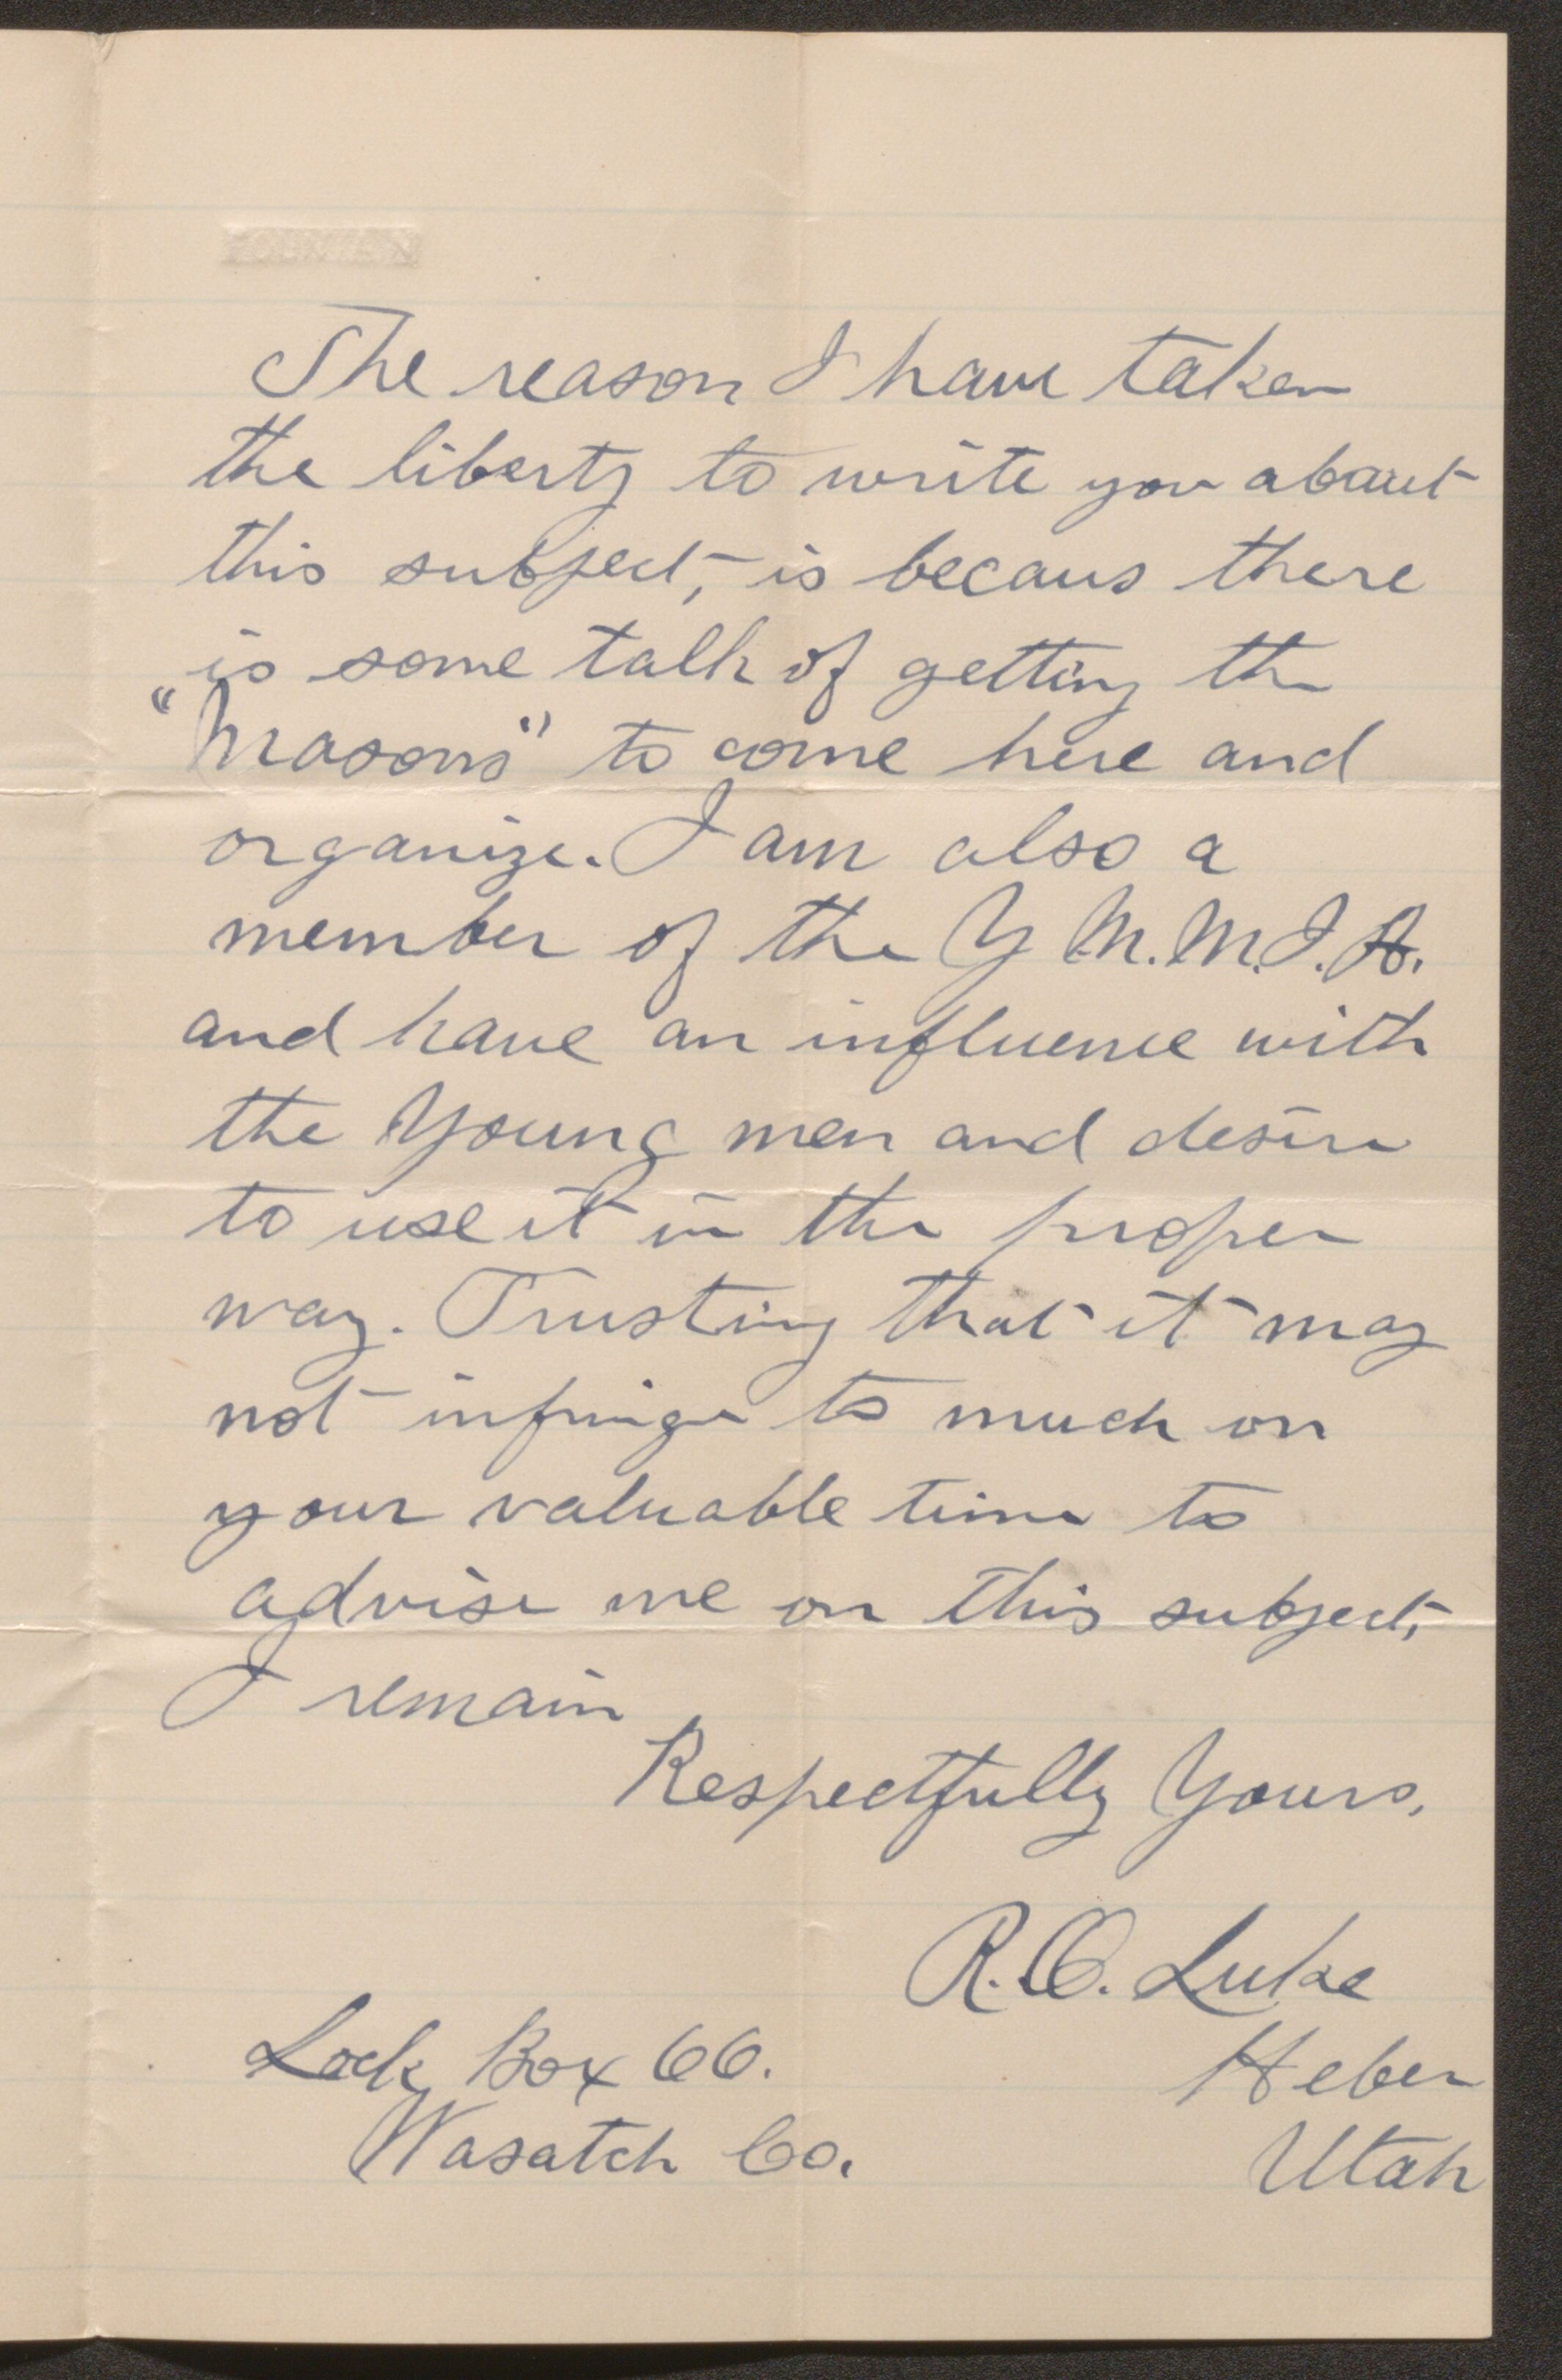 The reason I have taken
the liberty to write you about
this subject, is becaus there
is some talk of getting the
"Masons" to come here and
organize. I am also a
member of the Y M. M. I. A.
and have an influence with
the Young men and desire
to use it in the proper
way. Trusting that it may
not infringe to much on
your valuable time to
advise me on this subject,
I remain
Respectfully Yours,
R. O. Luke
Lock Box 66. Heber
Wasatch Co. Utah